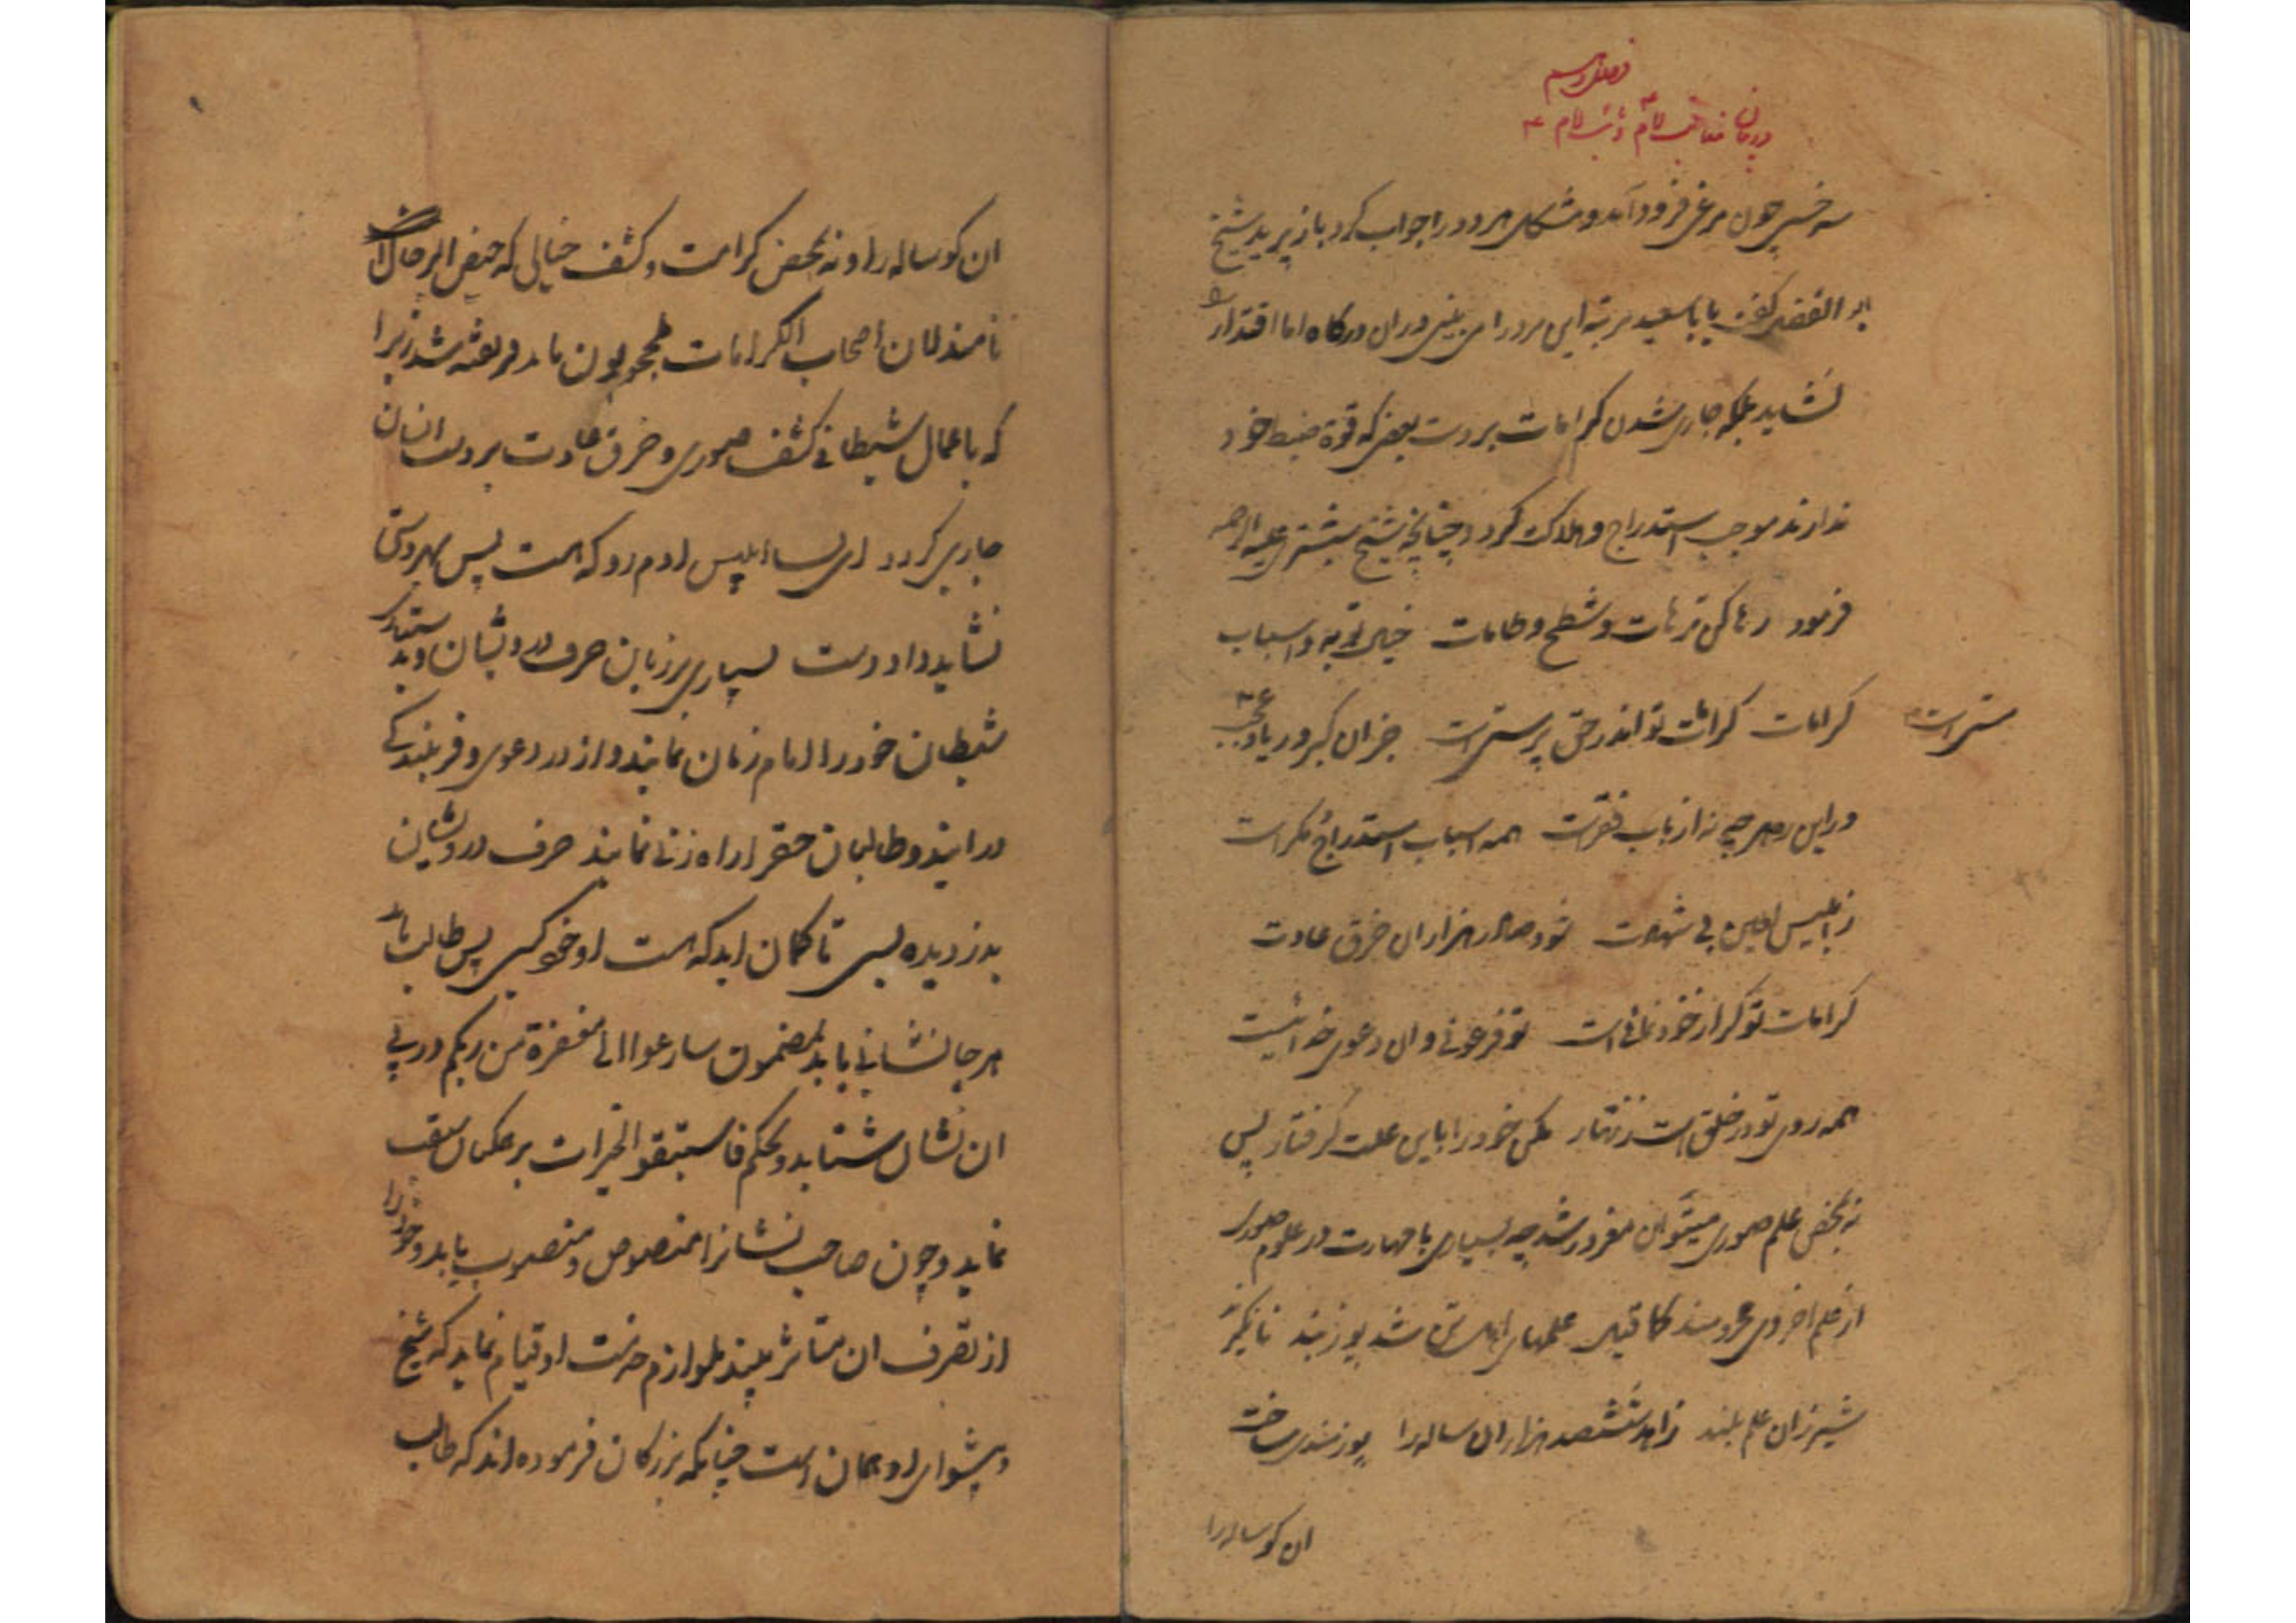 سرخسی چون مرغی فرود آمد و مشکلی مرد را جواب کرد باز پرید شیخ
ابو الفضل گفت یا با سعید مرتبه این مرد را می بینی در ان درکاه اما اقتدار را
نشاید بلکه جاری شدن کرامات بر دست بعضی که قوة ضبط خود
ندارند موجب استدراج و هلاک کردد چنانچه شیخ شبستری علیه الرحمه
فرمود رها کن ترهات و شطح و طامات خیال توبه و اسباب
کرامات کرامات تو اندر حق پرستی است جز ان کبر و ریا و عجب
مستی است
در این ره هر چه نه از باب فقر است همه اسباب استدراج و مکر است
ز ابلیس لعین بی شهادت شود صادر هزاران خرق عادت
کرامات تو کر از خود نمائی است تو فرعونی و ان دعوی خدائیست
همه روی تو در خلق است زنهار مکن خود را باین علت کرفتار پس
نه بمحض علم صوری میتوان مغرور شد چه بسیاری با مهارت در علوم صوری
از علم اخروی محرومند کما قیل علمهای اهل تن شد پوزبند تا نکیرد
شیر زان علم بلند زاهد ششصد هزاران ساله را پوزبندی ساخت
ان کوساله را
ان کوساله را و نه بمحض کرامت و کشف خیالی که حیض الرجال اش
نامند لان اصحاب الکرامات لمحجوبون باید فریفته شد زیرا
که با عمال شیطانی کشف صوری و خرق عادت بر دست انسان
جاری کردد ای بسا ابلیس ادم رو که هست پس بهر دستی
نشاید داد دست بسیاری بر زبان حرف درویشان و بد
شیطان خود را امام زمان نمایند و از در دعوی و فریبندکی
در ایند و طالبان حق را راه زنی نمایند حرف درویشان
بدزدیده بسی تا کمان اید که هست او خود کسی پس طالب باید
هر جا نشانی یابد بمضمون سارعوا الی مغفرة من ربکم در پی
ان نشان شتابد و بحکم فاستبقوا الخیرات بر همکنان سبقت
نماید و چون صاحب نشانرا منصوص و منصوب یابد و خود را
از تصرف ان متاثر بیند بلوازم خدمت او قیام نماید که شیخ
و پیشوای او همان است چنانکه بزرکان فرموده اند که طالب